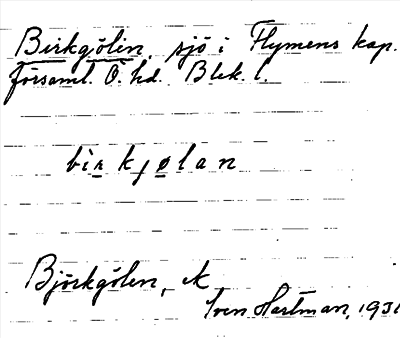 Birkgölen, sjö i Flymens kap.
församl. Ö. hd. Blek. l.
bìʀkjølan
Björkgölen, A
Sven Hartman, 1931